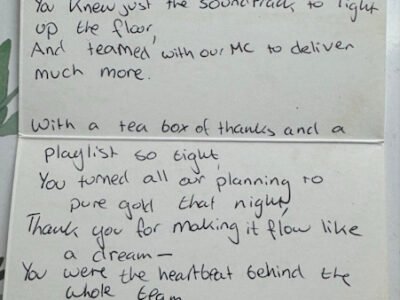 You knew just the soundtrack to light
up the floor,
And teamed with our MC to deliver
much more.
With a tea box of thanks and a
playlist so tight,
You turned all our planning to
pure gold that night,
Thank you for making it flow like
a dream—
You were the heartbeat behind the
whole team